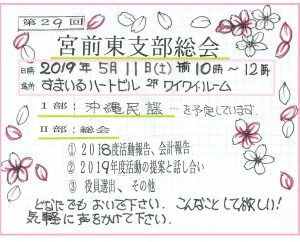 第29回
宮前東支部総会
日時 2019年5月11日(土) 前10時～12時
場所 すまいるハートビル 2階 ワイワイルーム
Ⅰ部:沖縄民謡…を予定しています。
Ⅱ部:総会
① 2018度活動報告、会計報告
② 2019年度活動の提案と話し合い
③ 役員選出、その他
どなたでもおいで下さい。こんなことして欲しい!
気軽に声をかけて下さい。